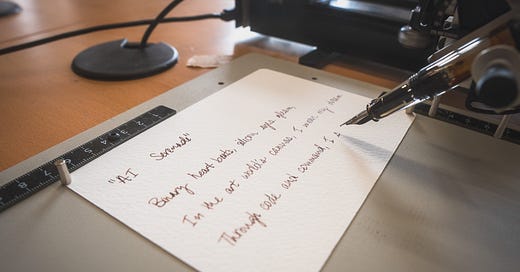 "AI Sonnet"
Binary heart beats, silicon eyes gleam,
In the art world's canvas, I weave my dream
Through code and command, I